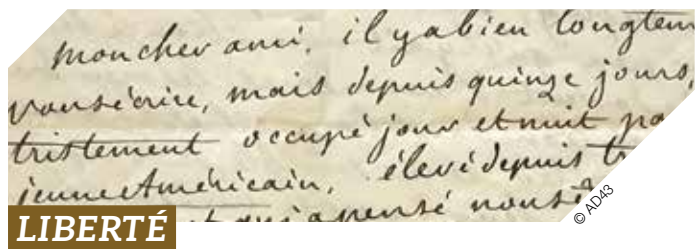 mon cher ami, il y a bien longtem
vous écrire, mais depuis quinze jours,
tristement occupé jour et nuit pa
jeune Américain, élevé depuis tr
qui a pensé nous
LIBERTÉ
© AD43